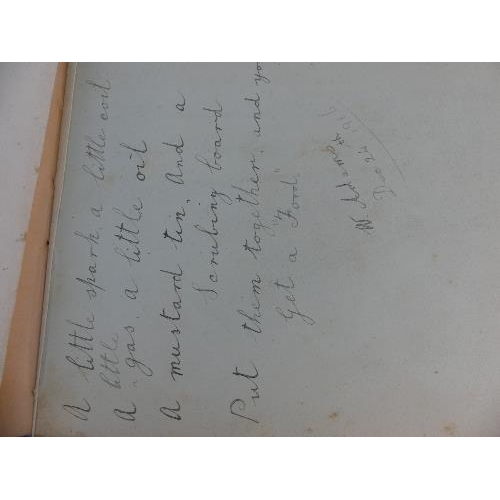 A little spark, a little coil
little
A gas, a little oil
A mustard tin, and a
Scrubing board
Put them together, and yo
Get a "Ford"
W. Adams
Dec 24 1916